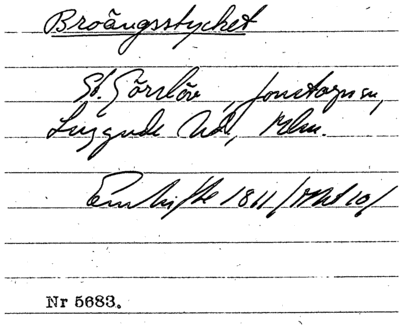 Broängsstycket
St. Görslöv, Jonstorp sn,
Luggude hd, Mlm.
Enskifte 1811 /Akt 10/
Nr 5683.